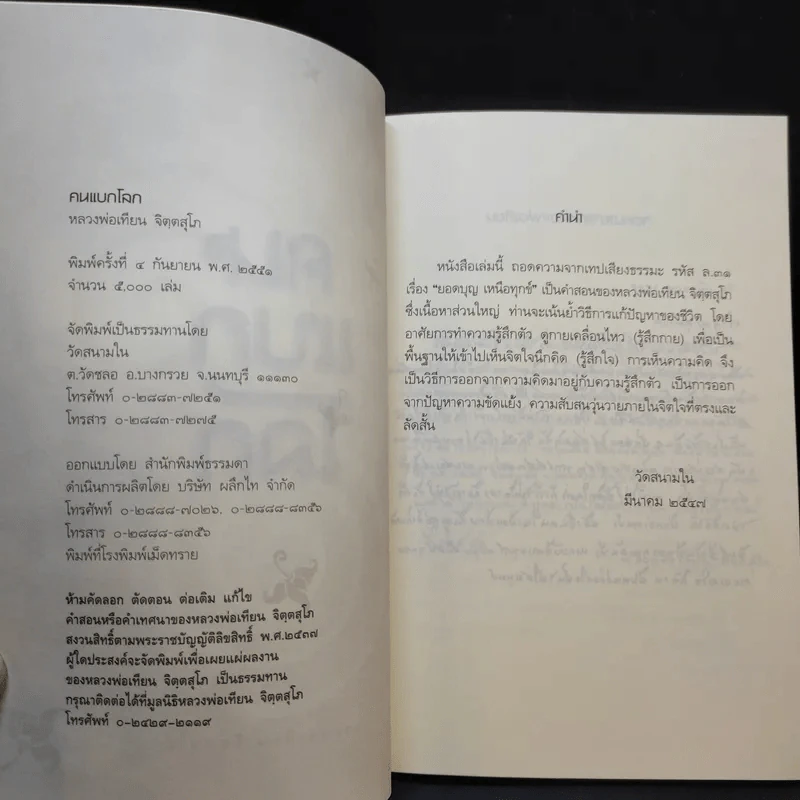 คนแบกโลก
หลวงพ่อเทียน จิตฺตสุโภ
พิมพ์ครั้งที่ ๔ กันยายน พ.ศ. ๒๕๕๑
จำนวน ๕,๐๐๐ เล่ม
จัดพิมพ์เป็นธรรมทานโดย
วัดสนามใน
ต.วัดชลอ อ.บางกรวย จ.นนทบุรี ๑๑๑๓๐
โทรศัพท์ ๐-๒๘๘๓-๗๒๕๑
โทรสาร ๐-๒๘๘๓-๗๒๗๕
ออกแบบโดย สำนักพิมพ์ธรรมดา
ดำเนินการผลิตโดย บริษัท ผลึกไท จำกัด
โทรศัพท์ ๐-๒๘๘๘-๗๐๒๖, ๐-๒๘๘๘-๘๓๕๖
โทรสาร ๐-๒๘๘๘-๘๓๕๖
พิมพ์ที่โรงพิมพ์เม็ดทราย
ห้ามคัดลอก ตัดตอน ต่อเติม แก้ไข
คำสอนหรือคำเทศนาของหลวงพ่อเทียน จิตฺตสุโภ
สงวนสิทธิ์ตามพระราชบัญญัติลิขสิทธิ์ พ.ศ.๒๕๓๗
ผู้ใดประสงค์จะจัดพิมพ์เพื่อเผยแผ่ผลงาน
ของหลวงพ่อเทียน จิตฺตสุโภ เป็นธรรมทาน
กรุณาติดต่อได้ที่มูลนิธิหลวงพ่อเทียน จิตฺตสุโภ
โทรศัพท์ ๐-๒๔๒๙-๒๑๑๙
คำนำ
หนังสือเล่มนี้ ถอดความจากเทปเสียงธรรมะ รหัส ล.๓๑
เรื่อง "ยอดบุญ เหนือทุกข์" เป็นคำสอนของหลวงพ่อเทียน จิตฺตสุโภ
ซึ่งเนื้อหาส่วนใหญ่ ท่านจะเน้นย้ำวิธีการแก้ปัญหาของชีวิต โดย
อาศัยการทำความรู้สึกตัว ดูกายเคลื่อนไหว (รู้สึกกาย) เพื่อเป็น
พื้นฐานให้เข้าไปเห็นจิตใจนึกคิด (รู้สึกใจ) การเห็นความคิด จึง
เป็นวิธีการออกจากความคิดมาอยู่กับความรู้สึกตัว เป็นการออก
จากปัญหาความขัดแย้ง ความสับสนวุ่นวายภายในจิตใจที่ตรงและ
ลัดสั้น
วัดสนามใน
มีนาคม ๒๕๔๗